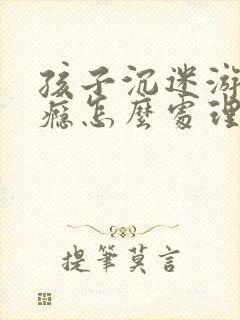 孩子沉迷游
癮怎麼處理
提筆莫言